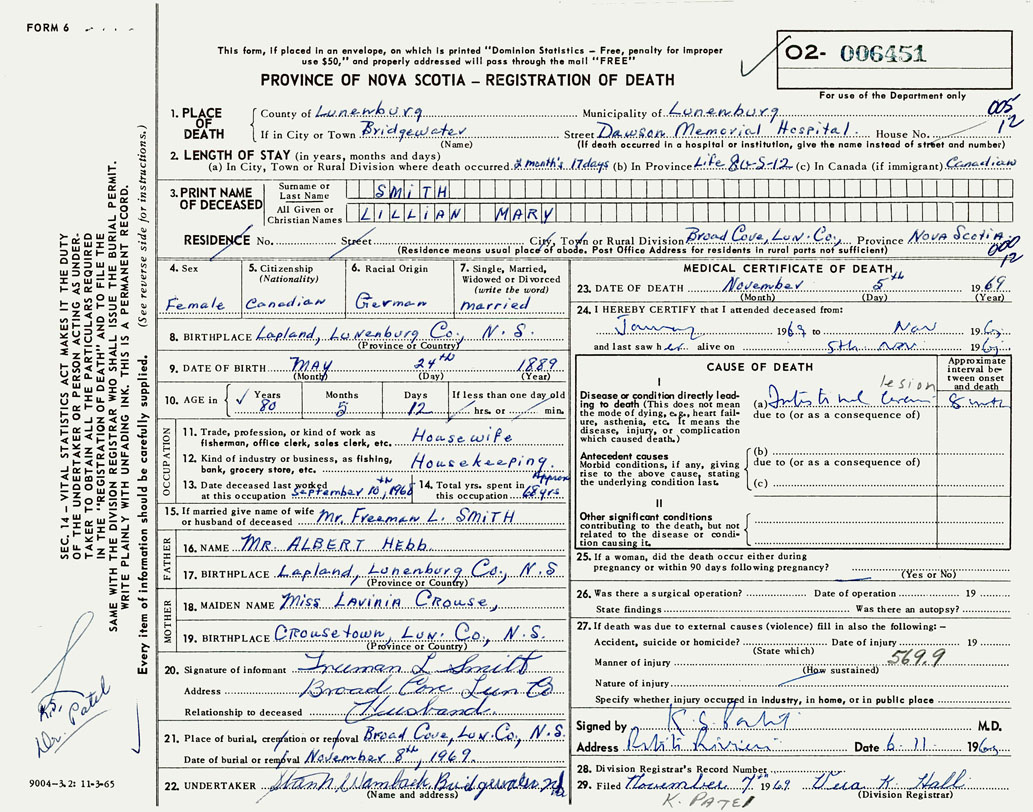 FORM 6
This form, if placed in an envelope, on which is printed "Dominion Statistics – Free, penalty for improper
use $50," and properly addressed will pass through the mail "FREE"
PROVINCE OF NOVA SCOTIA – REGISTRATION OF DEATH
O2- 006451
For use of the Department only
1. PLACE OF DEATH
County of Lunenburg Municipality of Lunenburg 005
If in City or Town Bridgewater Street Dawson Memorial Hospital. House No. 12
(Name) (If death occurred in a hospital or institution, give the name instead of street and number)
2. LENGTH OF STAY (in years, months and days)
(a) In City, Town or Rural Division where death occurred month's 17 days (b) In Province Life 80-5-12 (c) In Canada (if immigrant) Canadian
3. PRINT NAME OF DECEASED
Surname or Last Name SMITH
All Given or Christian Names LILLIAN MARY
RESIDENCE No. Street City, Town or Rural Division Broad Cove, Lun. Co., Province Nova Scotia.
(Residence means usual place of abode. Post Office Address for residents in rural parts not sufficient) 000
12
4. Sex
Female
5. Citizenship
(Nationality)
Canadian
6. Racial Origin
German
7. Single, Married, Widowed or Divorced
(write the word)
married
8. BIRTHPLACE Lapland, Lunenburg Co., N. S.
(Province or Country)
9. DATE OF BIRTH MAY 24th 1889
(Month) (Day) (Year)
10. AGE in Years Months Days If less than one day old
80 5 12 hrs. or min.
OCCUPATION
11. Trade, profession, or kind of work as
fisherman, office clerk, sales clerk, etc. Housewife
12. Kind of industry or business, as fishing,
bank, grocery store, etc. Housekeeping.
13. Date deceased last worked
at this occupation September 10th, 1968
14. Total yrs. spent in
this occupation Approx 68 yrs
15. If married give name of wife
or husband of deceased Mr. Freeman L. SMITH
FATHER
16. NAME MR. ALBERT HEBB.
17. BIRTHPLACE Lapland, Lunenburg Co., N.S
(Province or Country)
MOTHER
18. MAIDEN NAME Miss LAVINIA CROUSE,
19. BIRTHPLACE CROUSETOWN, Lun. Co., N.S.
(Province or Country)
20. Signature of informant L Smith
Address Broad Cove Lun Co
Relationship to deceased Husband.
21. Place of burial, cremation or removal Broad Cove, Lun. Co., N.S.
Date of burial or removal November 8th, 1969.
22. UNDERTAKER Wambach Bridgewater
(Name and address)
MEDICAL CERTIFICATE OF DEATH
23. DATE OF DEATH November 5th 1969
(Month) (Day) (Year)
24. I HEREBY CERTIFY that I attended deceased from:
1969 to Nov 1969
and last saw her alive on 5th Nov 1969
CAUSE OF DEATH
Approximate interval between onset and death
I
Disease or condition directly leading to death (This does not mean the mode of dying, e.g., heart failure, asthenia, etc. It means the disease, injury, or complication which caused death.)
(a) lesion 8
due to (or as a consequence of)
Antecedent causes
Morbid conditions, if any, giving rise to the above cause, stating the underlying condition last.
(b)
due to (or as a consequence of)
(c)
II
Other significant conditions
contributing to the death, but not related to the disease or condition causing it.
25. If a woman, did the death occur either during
pregnancy or within 90 days following pregnancy?
(Yes or No)
26. Was there a surgical operation? Date of operation 19
State findings Was there an autopsy?
27. If death was due to external causes (violence) fill in also the following: –
Accident, suicide or homicide? Date of injury 19
(State which)
Manner of injury 569.9
(How sustained)
Nature of injury
Specify whether injury occurred in Industry, in home, or in public place
Signed by K. S. Patel M.D.
Address Date 6.11 1969
28. Division Registrar's Record Number
29. Filed November 7th 1969. Vera K. Hall
(Division Registrar)
K. PATEL
SEC. 14 – VITAL STATISTICS ACT MAKES IT THE DUTY
OF THE UNDERTAKER OR PERSON ACTING AS UNDER-
TAKER TO OBTAIN ALL THE PARTICULARS REQUIRED
IN THE "REGISTRATION OF DEATH" AND TO FILE THE
SAME WITH THE DIVISION REGISTRAR WHO SHALL ISSUE THE BURIAL PERMIT.
WRITE PLAINLY WITH UNFADING INK. THIS IS A PERMANENT RECORD.
Every item of information should be carefully supplied. (See reverse side for instructions.)
Dr. Patel
9004-3.2: 11-3-65